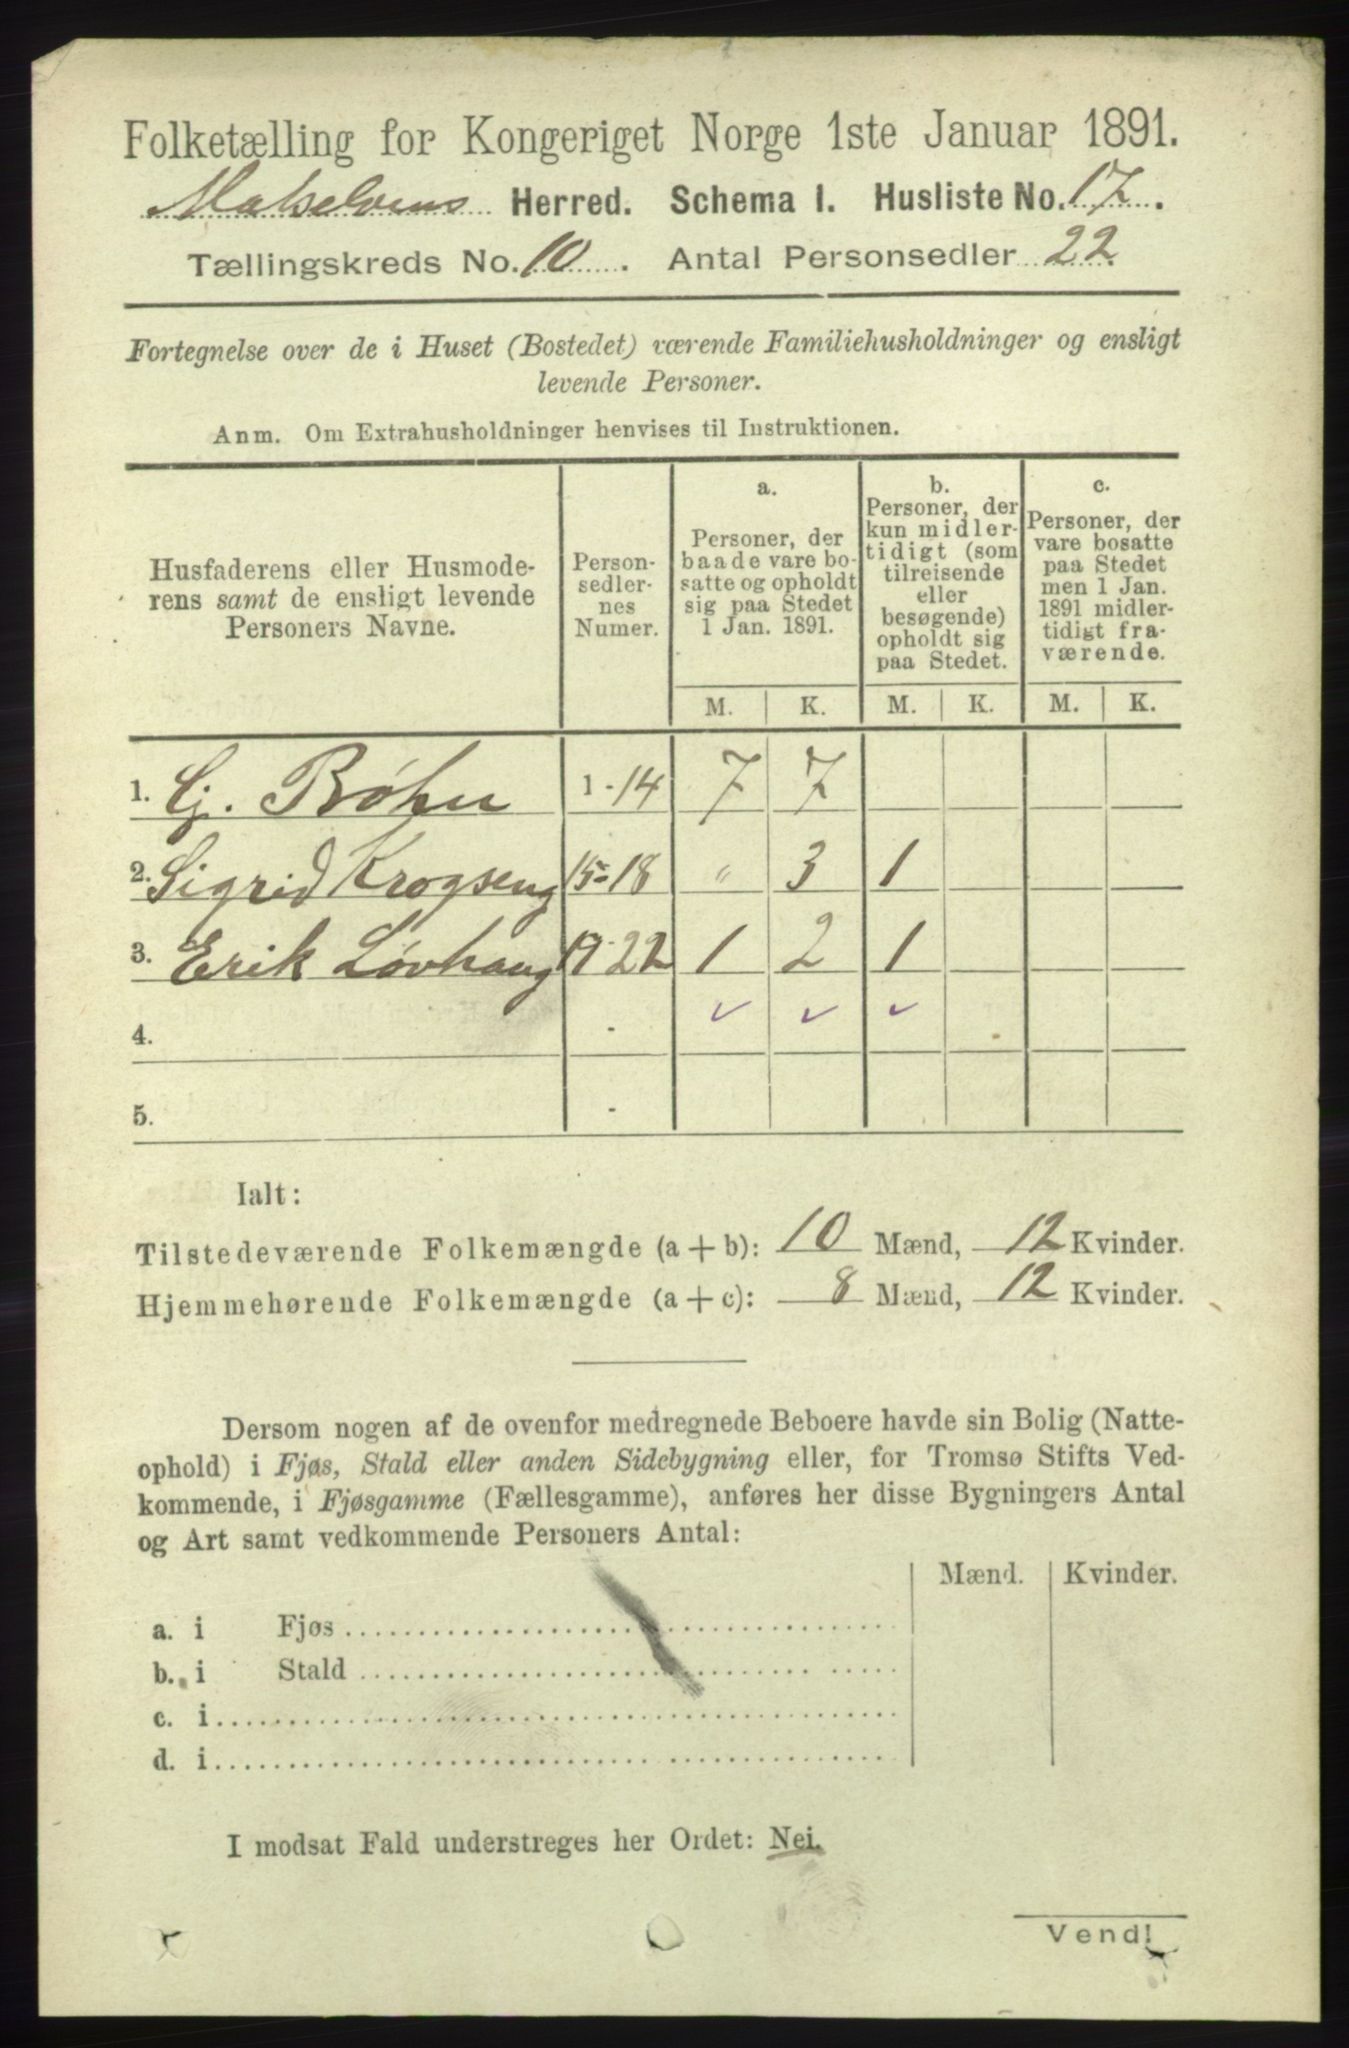 Folketælling for Kongeriget Norge 1ste Januar 1891.
Maalselvens Herred. Schema I. Husliste No. 17.
Tællingskreds No. 10. Antal Personsedler 22
Fortegnelse over de i Huset (Bostedet) værende Familiehusholdninger og ensligt
levende Personer.
Anm. Om Extrahusholdninger henvises til Instruktionen.
Husfaderens eller Husmode-
rens samt de ensligt levende
Personers Navne.
Person-
sedler-
nes
Numer.
a.
Personer, der
baade vare bo-
satte og opholdt
sig paa Stedet
1 Jan. 1891.
b.
Personer, der
kun midler-
tidigt (som
tilreisende
eller
besøgende)
opholdt sig
paa Stedet.
c.
Personer, der
vare bosatte
paa Stedet
men 1 Jan.
1891 midler-
tidigt fra-
værende.
M. K. M. K. M. K.
1. Cj. Bøhn 1-14 7 7
2. Sigrid Krogseng 15-18 " 3 1
3. Erik Løvhaug 19-22 1 2 1
4. - ✓ ✓ ✓
5. -
Ialt:
Tilstedeværende Folkemængde (a+b): 10 Mænd, 12 Kvinder.
Hjemmehørende Folkemængde (a+c): 8 Mænd, 12 Kvinder.
Dersom nogen af de ovenfor medregnede Beboere havde sin Bolig (Natte-
ophold) i Fjøs, Stald eller anden Sidebygning eller, for Tromsø Stifts Ved-
kommende, i Fjøsgamme (Fællesgamme), anføres her disse Bygningers Antal
og Art samt vedkommende Personers Antal:
Mænd. Kvinder.
a. i Fjøs
b. i Stald
c. i
d. i
I modsat Fald understreges her Ordet: Nei.
Vend!